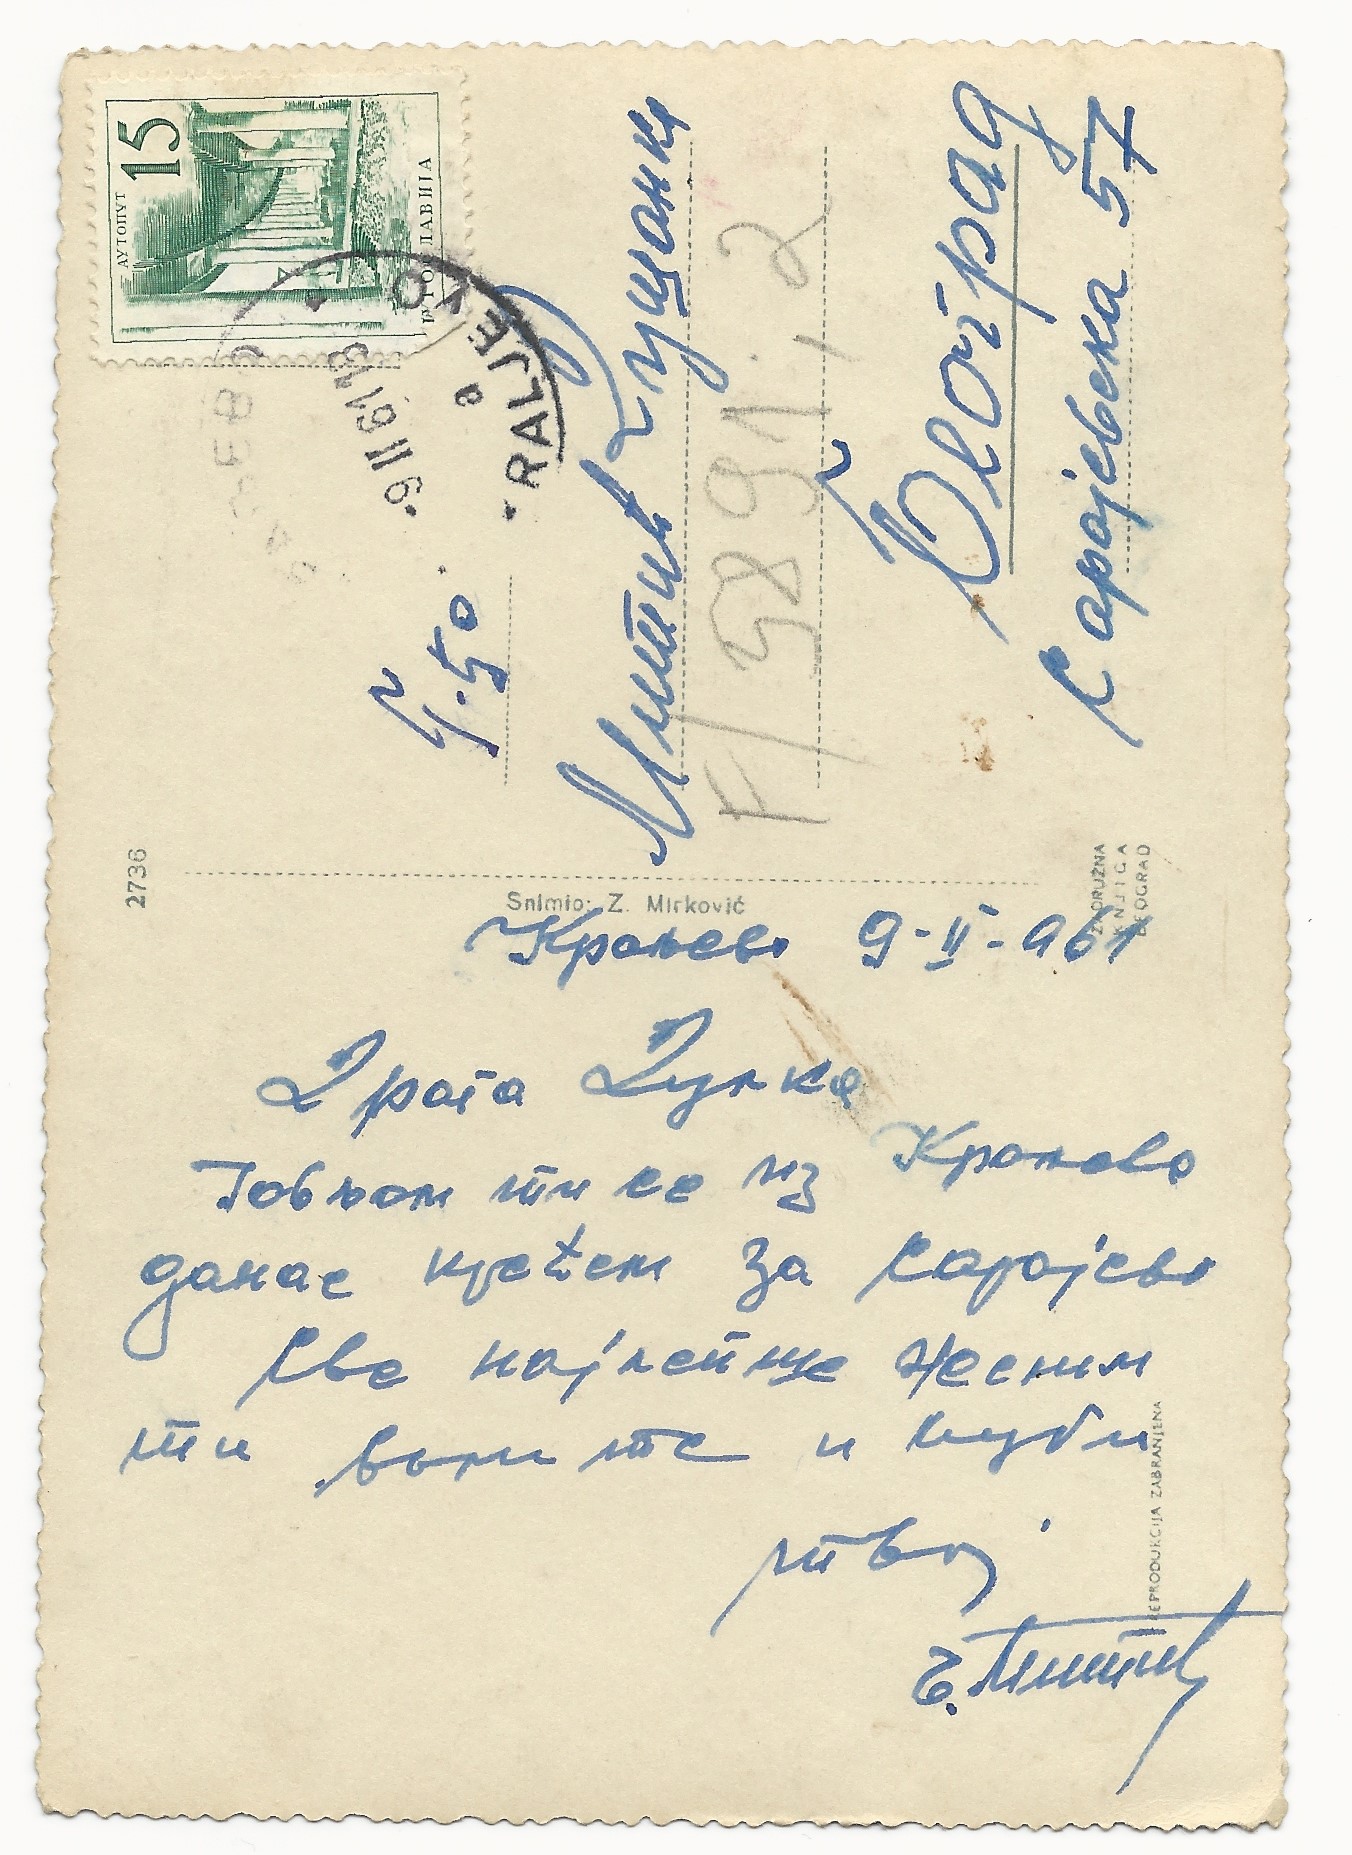 Краљево 9-II-961
Драга Душка
Јављам ти се из Краљева
данас крећем за Сарајево
Све најлепше желим
ти воли те и љуби
твој
Б. Митић
Митић Душанки
F/5891,2
Београд
Сарајевска 57
АУТОПУТ
15
ЈУГОСЛАВИЈА
KRALJEVO
a
9 II 61 18
2736
Snimio: Z. Mirković
ZADRUŽNA
KNJIGA
BEOGRAD
REPRODUKCIJA ZABRANJENA